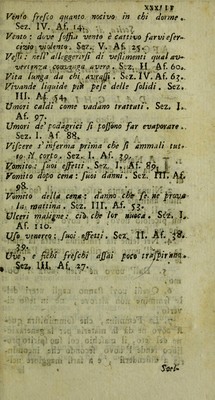 XXXIV
Vento fresco quanto nocivo in chi dorme.
Sez. IV. Af. 14.
Vento: dove soffia vento è cattivo farvi eser-
cizio violento. Sez. V. Af. 25.
Vesti: nell' alleggerirsi di vestimenti qual av-
vertenza convenga avere. Sez. II. Af. 60.
Vita lunga da chi avrassi. Sez. IV. Af. 63.
Vivande liquide più pese delle solidi. Sez.
III. Af. 54.
Umori caldi come vadano trattati. Sez. I.
Af. 97.
Umori de' podagrici si possono far evaporare.
Sez. I. Af. 88.
Viscere s' inferma prima che si ammali tut-
to il corpo. Sez. I. Af. 39.
Vomito: suoi effetti. Sez. I. Af. 89.
Vomito dopo cena: suoi danni. Sez. III. Af.
98.
Vomito della cena: danno che se ne prova
la mattina. Sez. III. Af. 53.
Ulceri maligne: ciò che lor nuoca. Sez. I.
Af. 110.
Uso venereo: suoi effetti. Sez. II. Af. 38.
39.
Uve, e fichi freschi assai poco traspirano.
Sez. III. Af. 27.